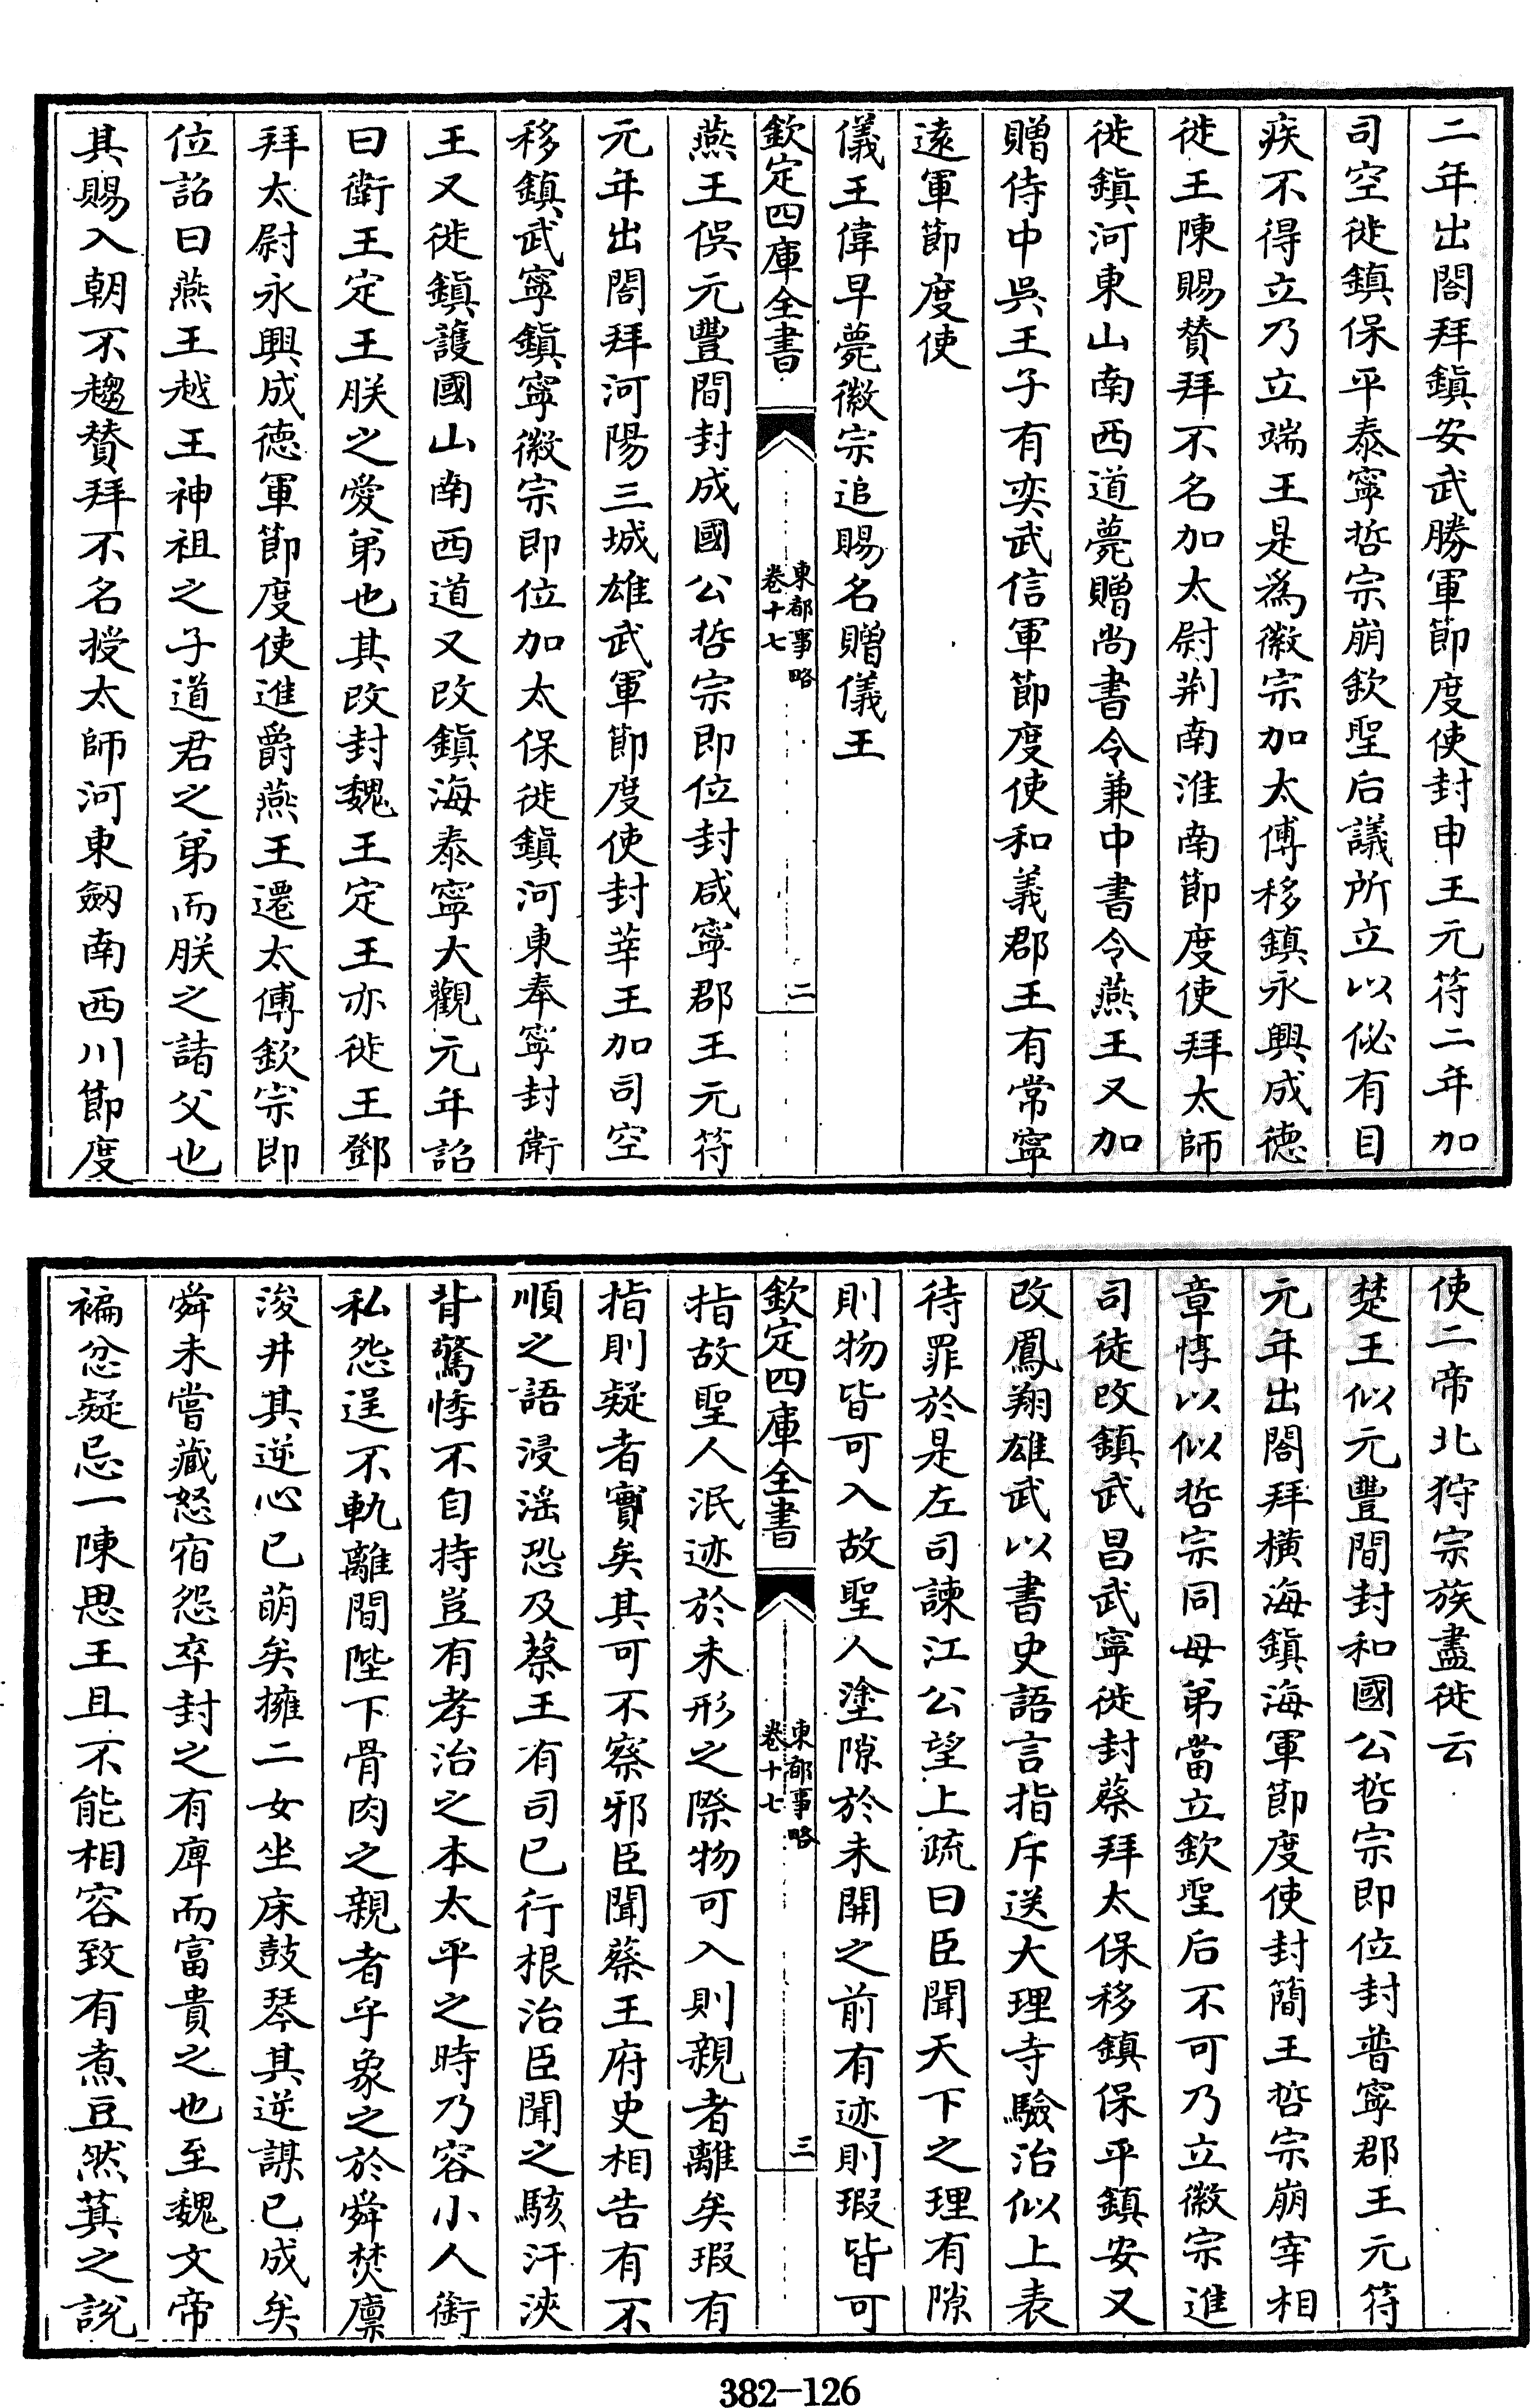 二年出閤拜鎮安武勝軍節度使封申王元符二年加
司空徙鎮保平泰寧哲宗崩欽聖后議所立以佖有目
疾不得立乃立端王是為徽宗加太傅移鎮永興成德
徙王陳賜贊拜不名加太尉荆南淮南節度使拜太師
徙鎮河東山南西道薨贈尚書令兼中書令燕王又加
贈侍中吳王子有奕武信軍節度使和義郡王有常寧
遠軍節度使
儀王偉早薨徽宗追賜名贈儀王
欽定四庫全書
東都事略
卷十七
二
燕王俁元豐間封成國公哲宗即位封咸寧郡王元符
元年出閤拜河陽三城雄武軍節度使封莘王加司空
移鎮武寧鎮寧徽宗即位加太保徙鎮河東奉寧封衛
王又徙鎮護國山南西道又改鎮海泰寧大觀元年詔
曰衛王定王朕之愛弟也其改封魏王定王亦徙王鄧
拜太尉永興成德軍節度使進爵燕王遷太傅欽宗即
位詔曰燕王越王神祖之子道君之弟而朕之諸父也
其賜入朝不趨贊拜不名授太師河東劒南西川節度
使二帝北狩宗族盡徙云
楚王似元豐間封和國公哲宗即位封普寧郡王元符
元年出閤拜橫海鎮海軍節度使封簡王哲宗崩宰相
章惇以似哲宗同母弟當立欽聖后不可乃立徽宗進
司徒改鎮武昌武寧徙封蔡拜太保移鎮保平鎮安又
改鳳翔雄武以書史語言指斥送大理寺驗治似上表
待罪於是左司諫江公望上疏曰臣聞天下之理有隙
則物皆可入故聖人塗隙於未開之前有迹則瑕皆可
欽定四庫全書
東都事略
卷十七
三
指故聖人泯迹於未形之際物可入則親者離矣瑕有
指則疑者實矣其可不察邪臣聞蔡王府史相告有不
順之語浸滛恐及蔡王有司已行根治臣聞之駭汗浹
背驚悸不自持豈有孝治之本太平之時乃容小人銜
私怨逞不軌離間陛下骨肉之親者乎象之於舜焚廩
浚井其逆心已萌矣擁二女坐床鼓琴其逆謀已成矣
舜未嘗藏怒宿怨卒封之有庳而富貴之也至魏文帝
褊忿疑忌一陳思王且不能相容致有煮豆然萁之說
382-126